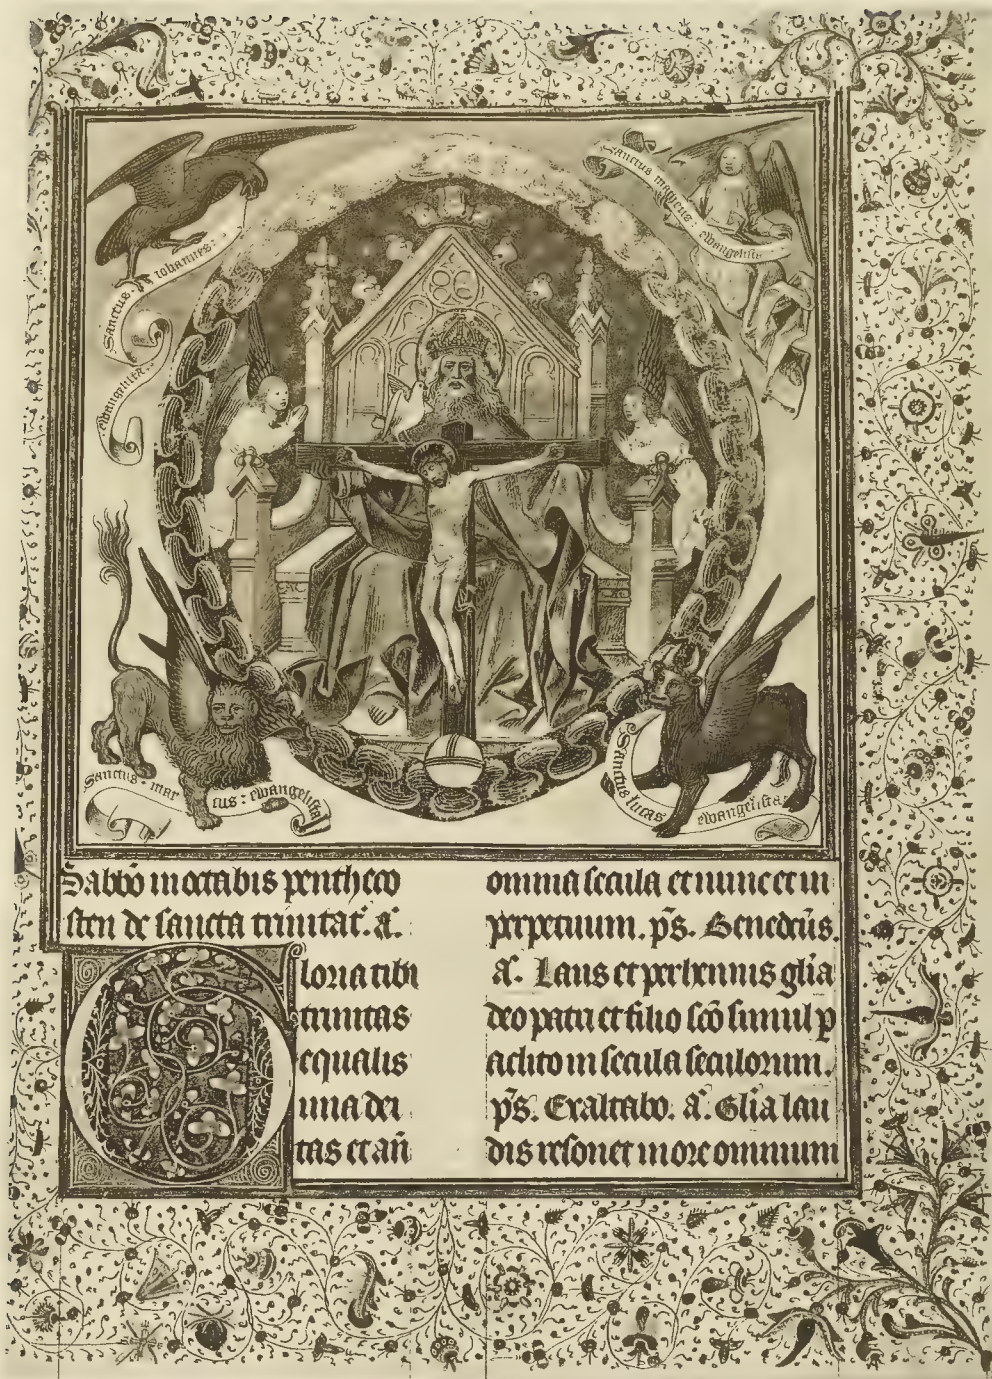 Sanctus iohannes:
ewangelista
Sanctus matheus ewangelista
Sanctus · mar cus : ewangelista
Sanctus lucas ewangelista
Sabbō in octabis pentheco
sten de sancta trinitat̄. a̅.
loria tibi
trinitas
equalis
una dei
tas et an̄
omnia secula et nunc et in
perpetuum. ps̄. Benedc̄us.
a̅. Laus et perhennis gl̄ia
deo patri et filio sc̄ō simul p
aclito in secula seculorum.
ps̄. Exaltabo. a̅. Gl̄ia lau
dis resonet in ore omnium